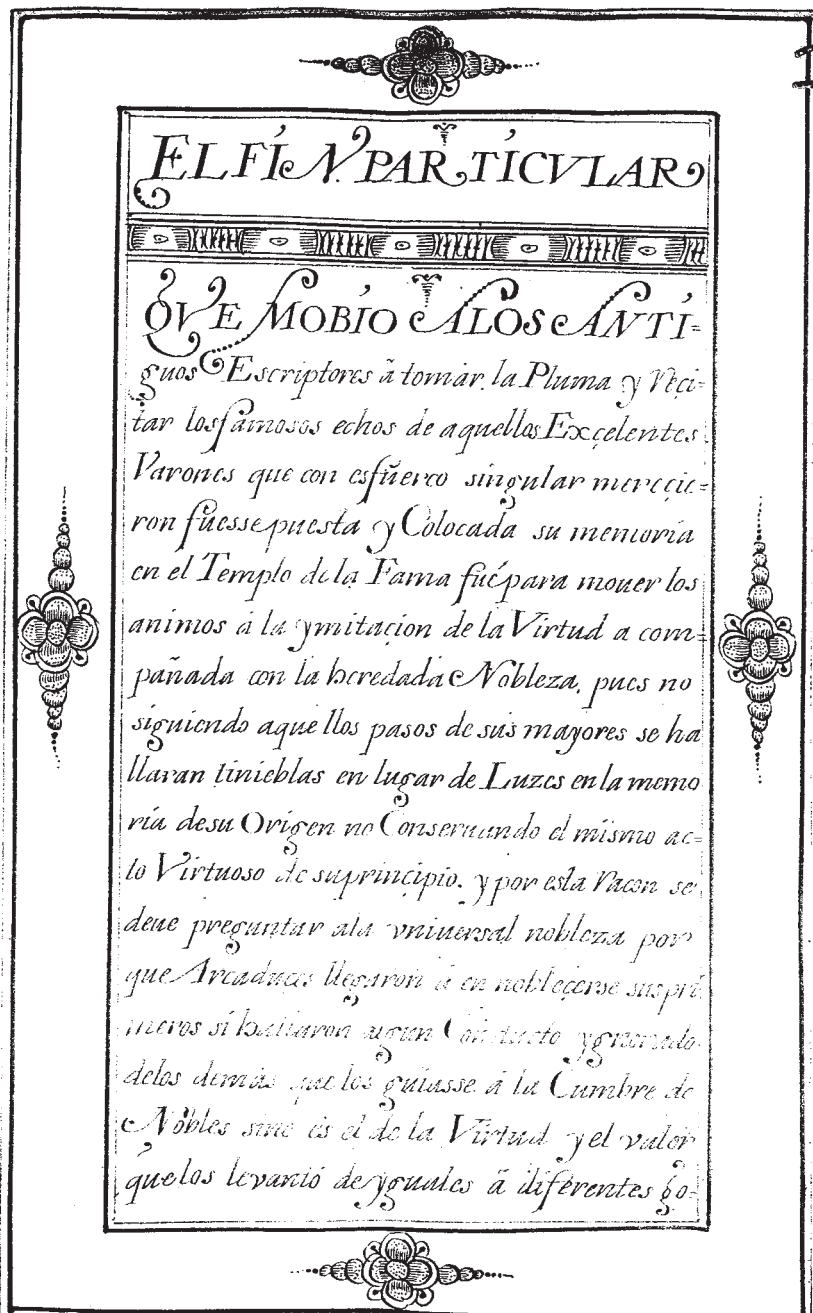 EL FIN PARTICVLAR
QVE MOBIO A LOS ANTI=
guos Escriptores â tomar la Pluma y Reci=
tar los famosos echos de aquellos Excelentes
Varones que con esfuerço singular mereçie=
ron fuesse puesta y Colocada su memoria
en el Templo de la Fama fué para mouer los
animos â la ymitaçion de la Virtud a com=
pañada con la heredada Nobleza, pues no
siguiendo aquellos pasos de sus mayores se ha
llaran tinieblas en lugar de Luzes en la memo
ria de su Origen no Conseruando el mismo ac=
to Virtuoso de su principio. y por esta Raçon se
deue preguntar ala vniuersal nobleza por
que Arcaduces llegaron â en nobleçerse sus pri
meros si hallaron algun Conducto ygnorado
delos demas que los guiasse â la Cumbre de
Nobles sino es el de la Virtud y el valor
que los levantó de yguales â diferentes go=